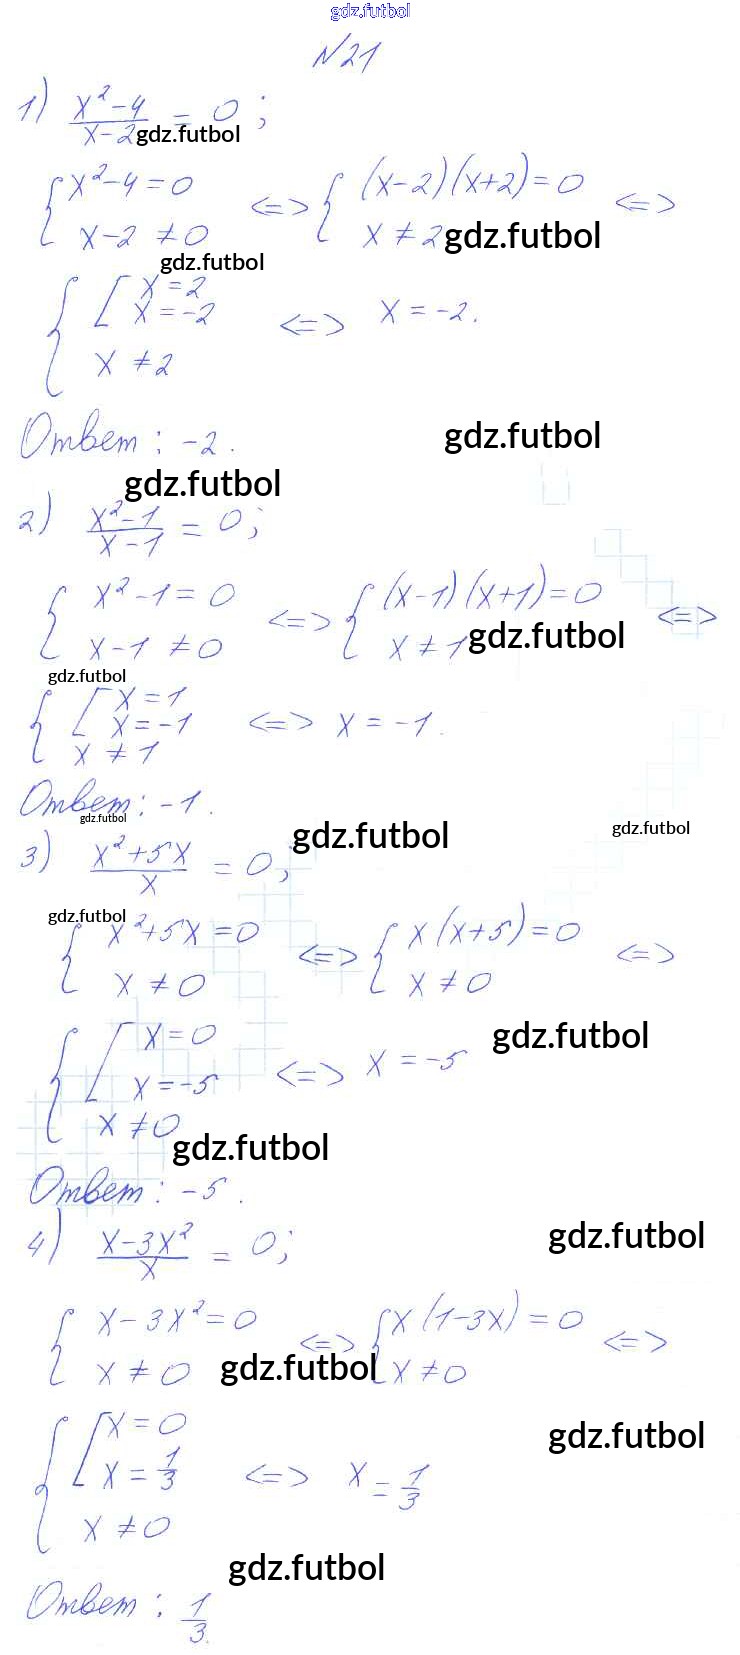 gdz.futbol
№21
1) (x²-4)/(x-2) = 0;
gdz.futbol
{ x²-4=0 <=> { (x-2)(x+2)=0 <=>
x-2 ≠0 x ≠2 gdz.futbol
gdz.futbol
{ [ x=2
x=-2 <=> x=-2.
x ≠2
Ответ: -2. gdz.futbol
gdz.futbol
2) (x²-1)/(x-1) = 0;
{ x²-1=0 <=> { (x-1)(x+1)=0 <=>
x-1 ≠0 x ≠1 gdz.futbol
gdz.futbol
{ [ x=1
x=-1 <=> x=-1.
x ≠1
Ответ: -1.
gdz.futbol gdz.futbol gdz.futbol
3) (x²+5x)/x = 0;
gdz.futbol
{ x²+5x=0 <=> { x(x+5)=0 <=>
x ≠0 x ≠0
{ [ x=0 gdz.futbol
x=-5 <=> x=-5
x ≠0
gdz.futbol
Ответ: -5.
4) (x-3x²)/x = 0; gdz.futbol
{ x-3x²=0 <=> { x(1-3x)=0 <=>
x ≠0 gdz.futbol x ≠0
{ [ x=0 gdz.futbol
x=1/3 <=> x=1/3
x ≠0
gdz.futbol
Ответ: 1/3.